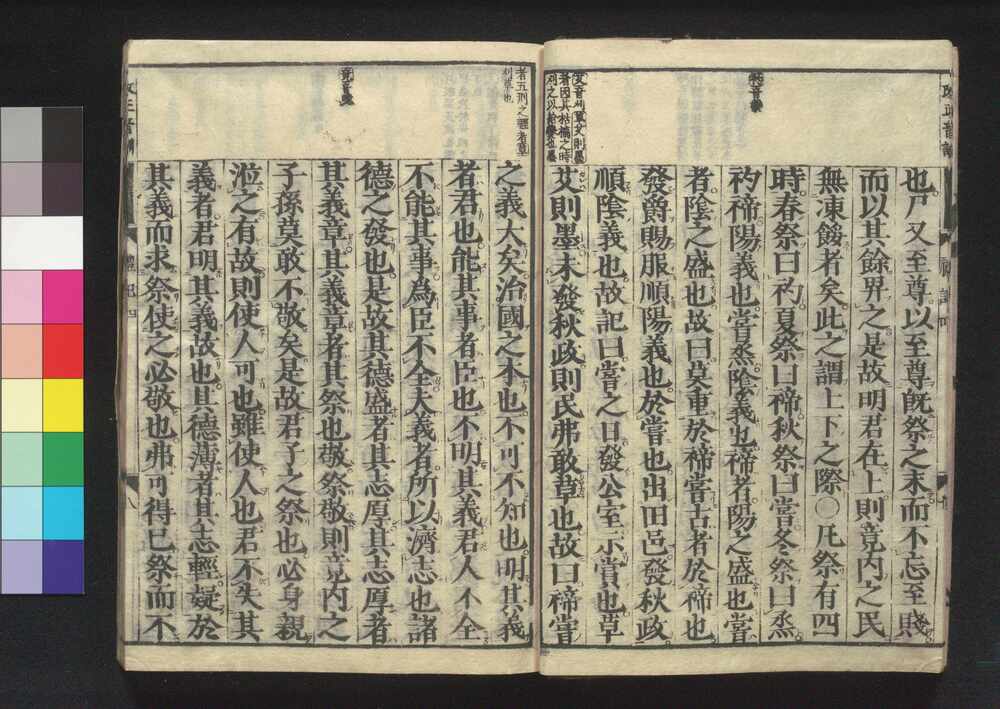 也尸又至尊以至尊既祭之末而不忘至賤
而以其餘畀之是故明君在上則竟内之民
無凍餒者矣此之謂上下之際○凡祭有四
時春祭曰礿夏祭曰禘秋祭曰嘗冬祭曰烝
礿禘陽義也嘗烝陰義也禘者陽之盛也嘗
者陰之盛也故曰莫重於禘嘗古者於禘也
發爵賜服順陽義也於嘗也出田邑發秋政
順陰義也故記曰嘗之日發公室示賞也草
艾則墨未發秋政則民弗敢草也故曰禘嘗
艾音刈草艾則墨
者因其枯槁之時
刈之以給爨也墨
者五刑之輕者草
刈草也
之義大矣治國之本也不可不知也明其義
者君也能其事者臣也不明其義君人不全
不能其事為臣不全夫義者所以濟志也諸
德之發也是故其德盛者其志厚其志厚者
其義章其義章者其祭也敬祭敬則竟内之
子孫莫敢不敬矣是故君子之祭也必身親
涖之有故則使人可也雖使人也君不失其
義者君明其義故也其德薄者其志輕疑於
其義而求祭使之必敬也弗可得已祭而不
竟音境
禮記四
八